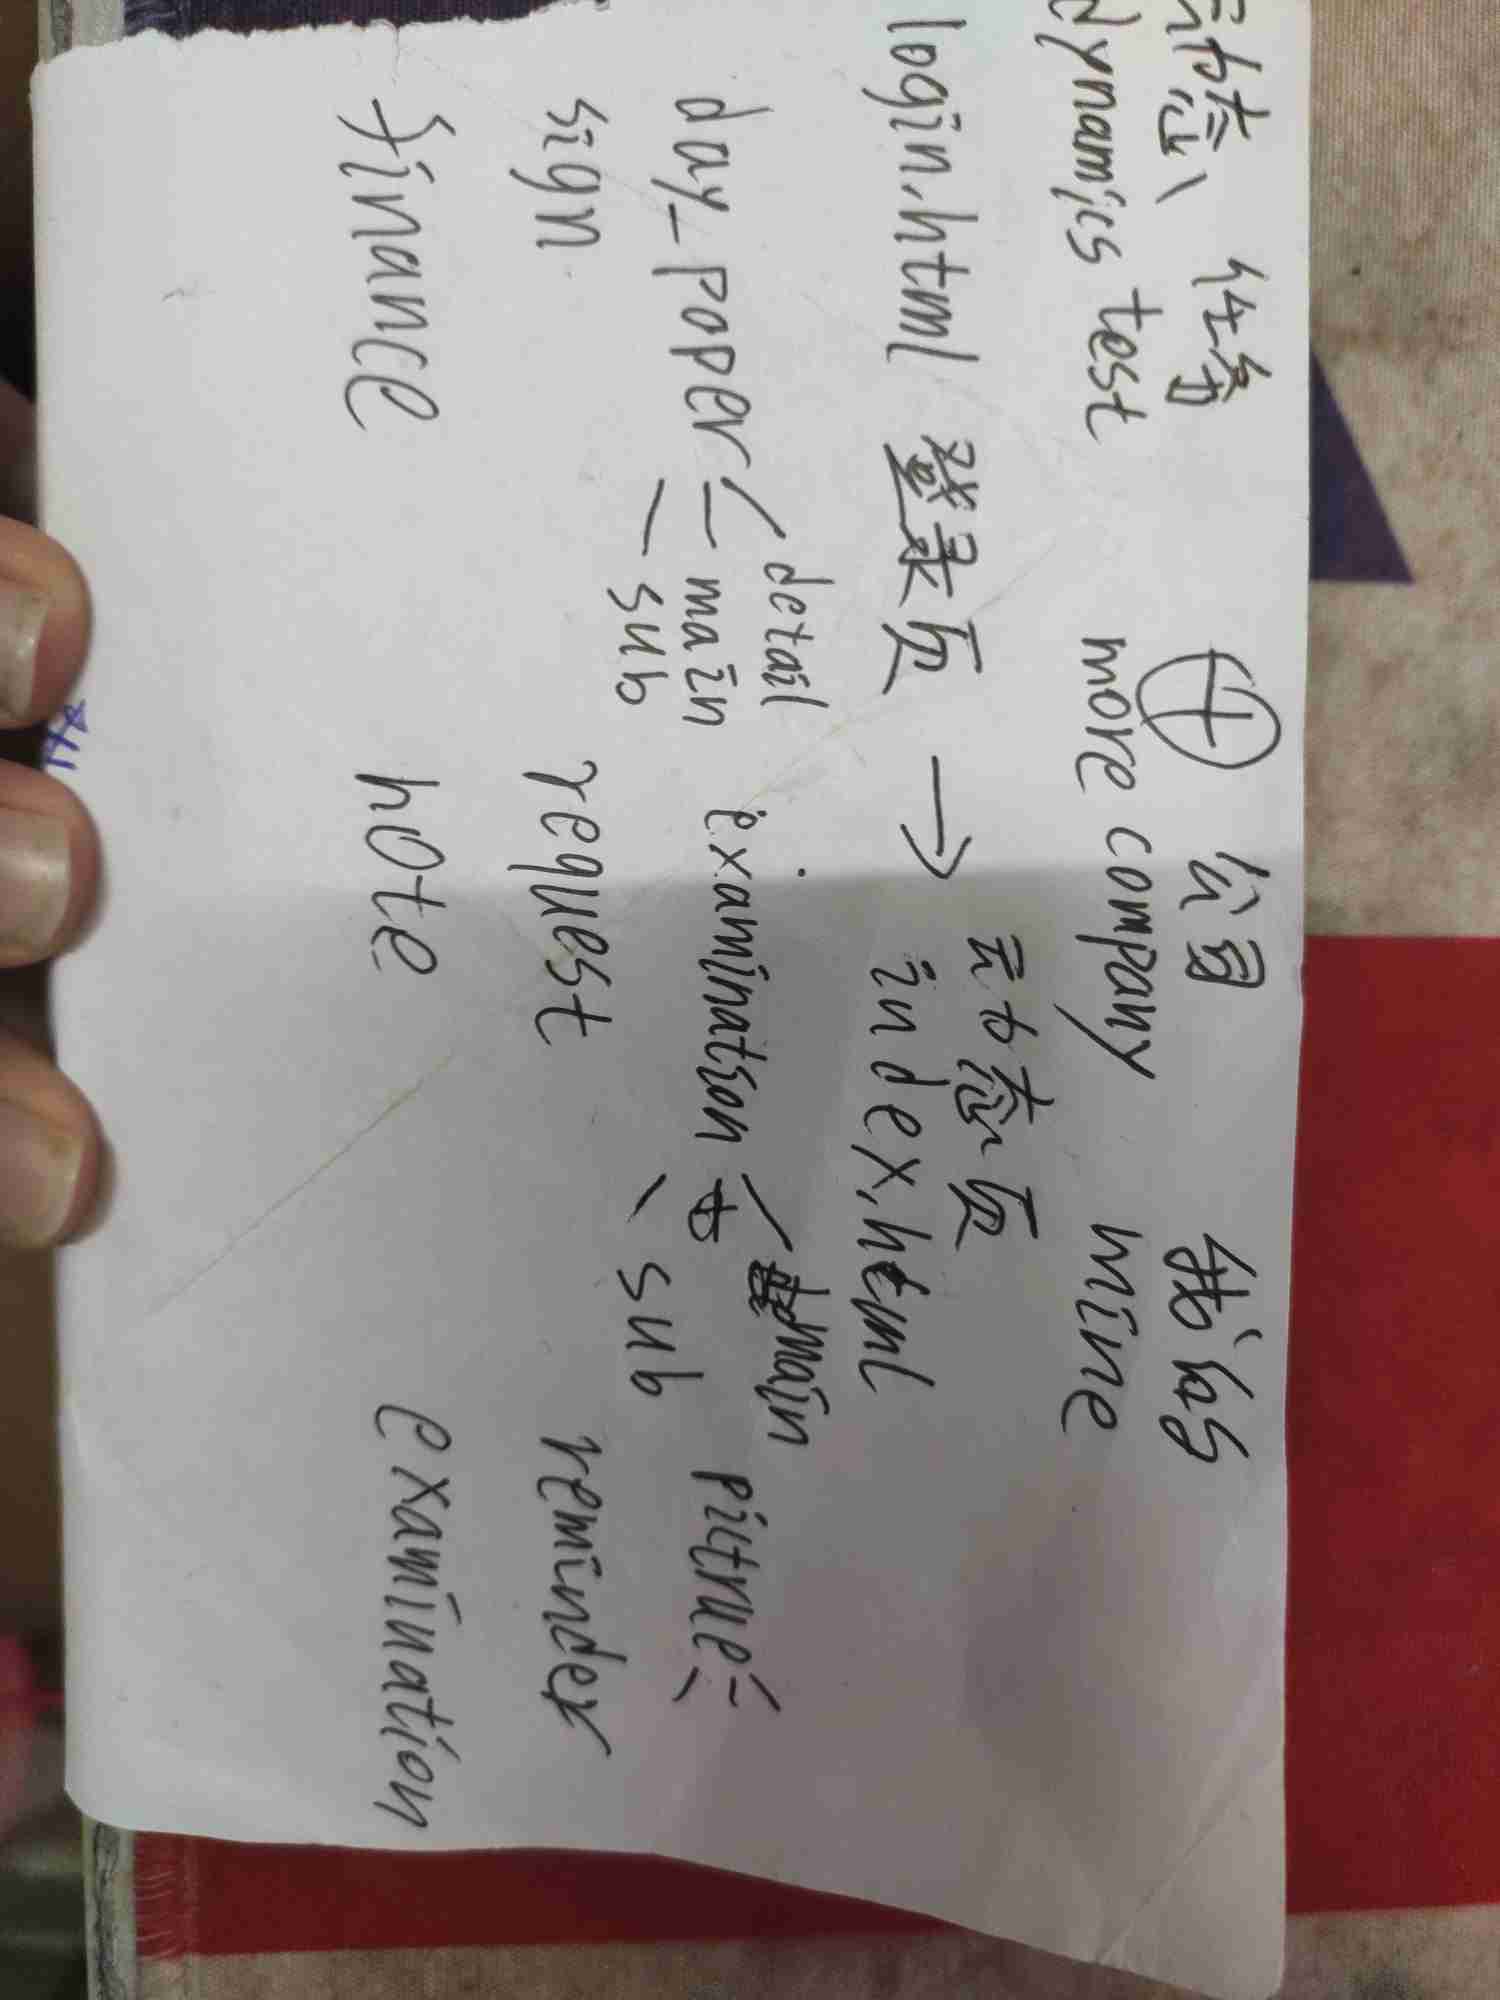 动态、 任务 ⊕ 公司 我的
dynamics test more company mine
动态页
login.html 登录页 → index.html
detail main
day_poper main examination pictrue
sub sub
sign request reminder
finance note examination